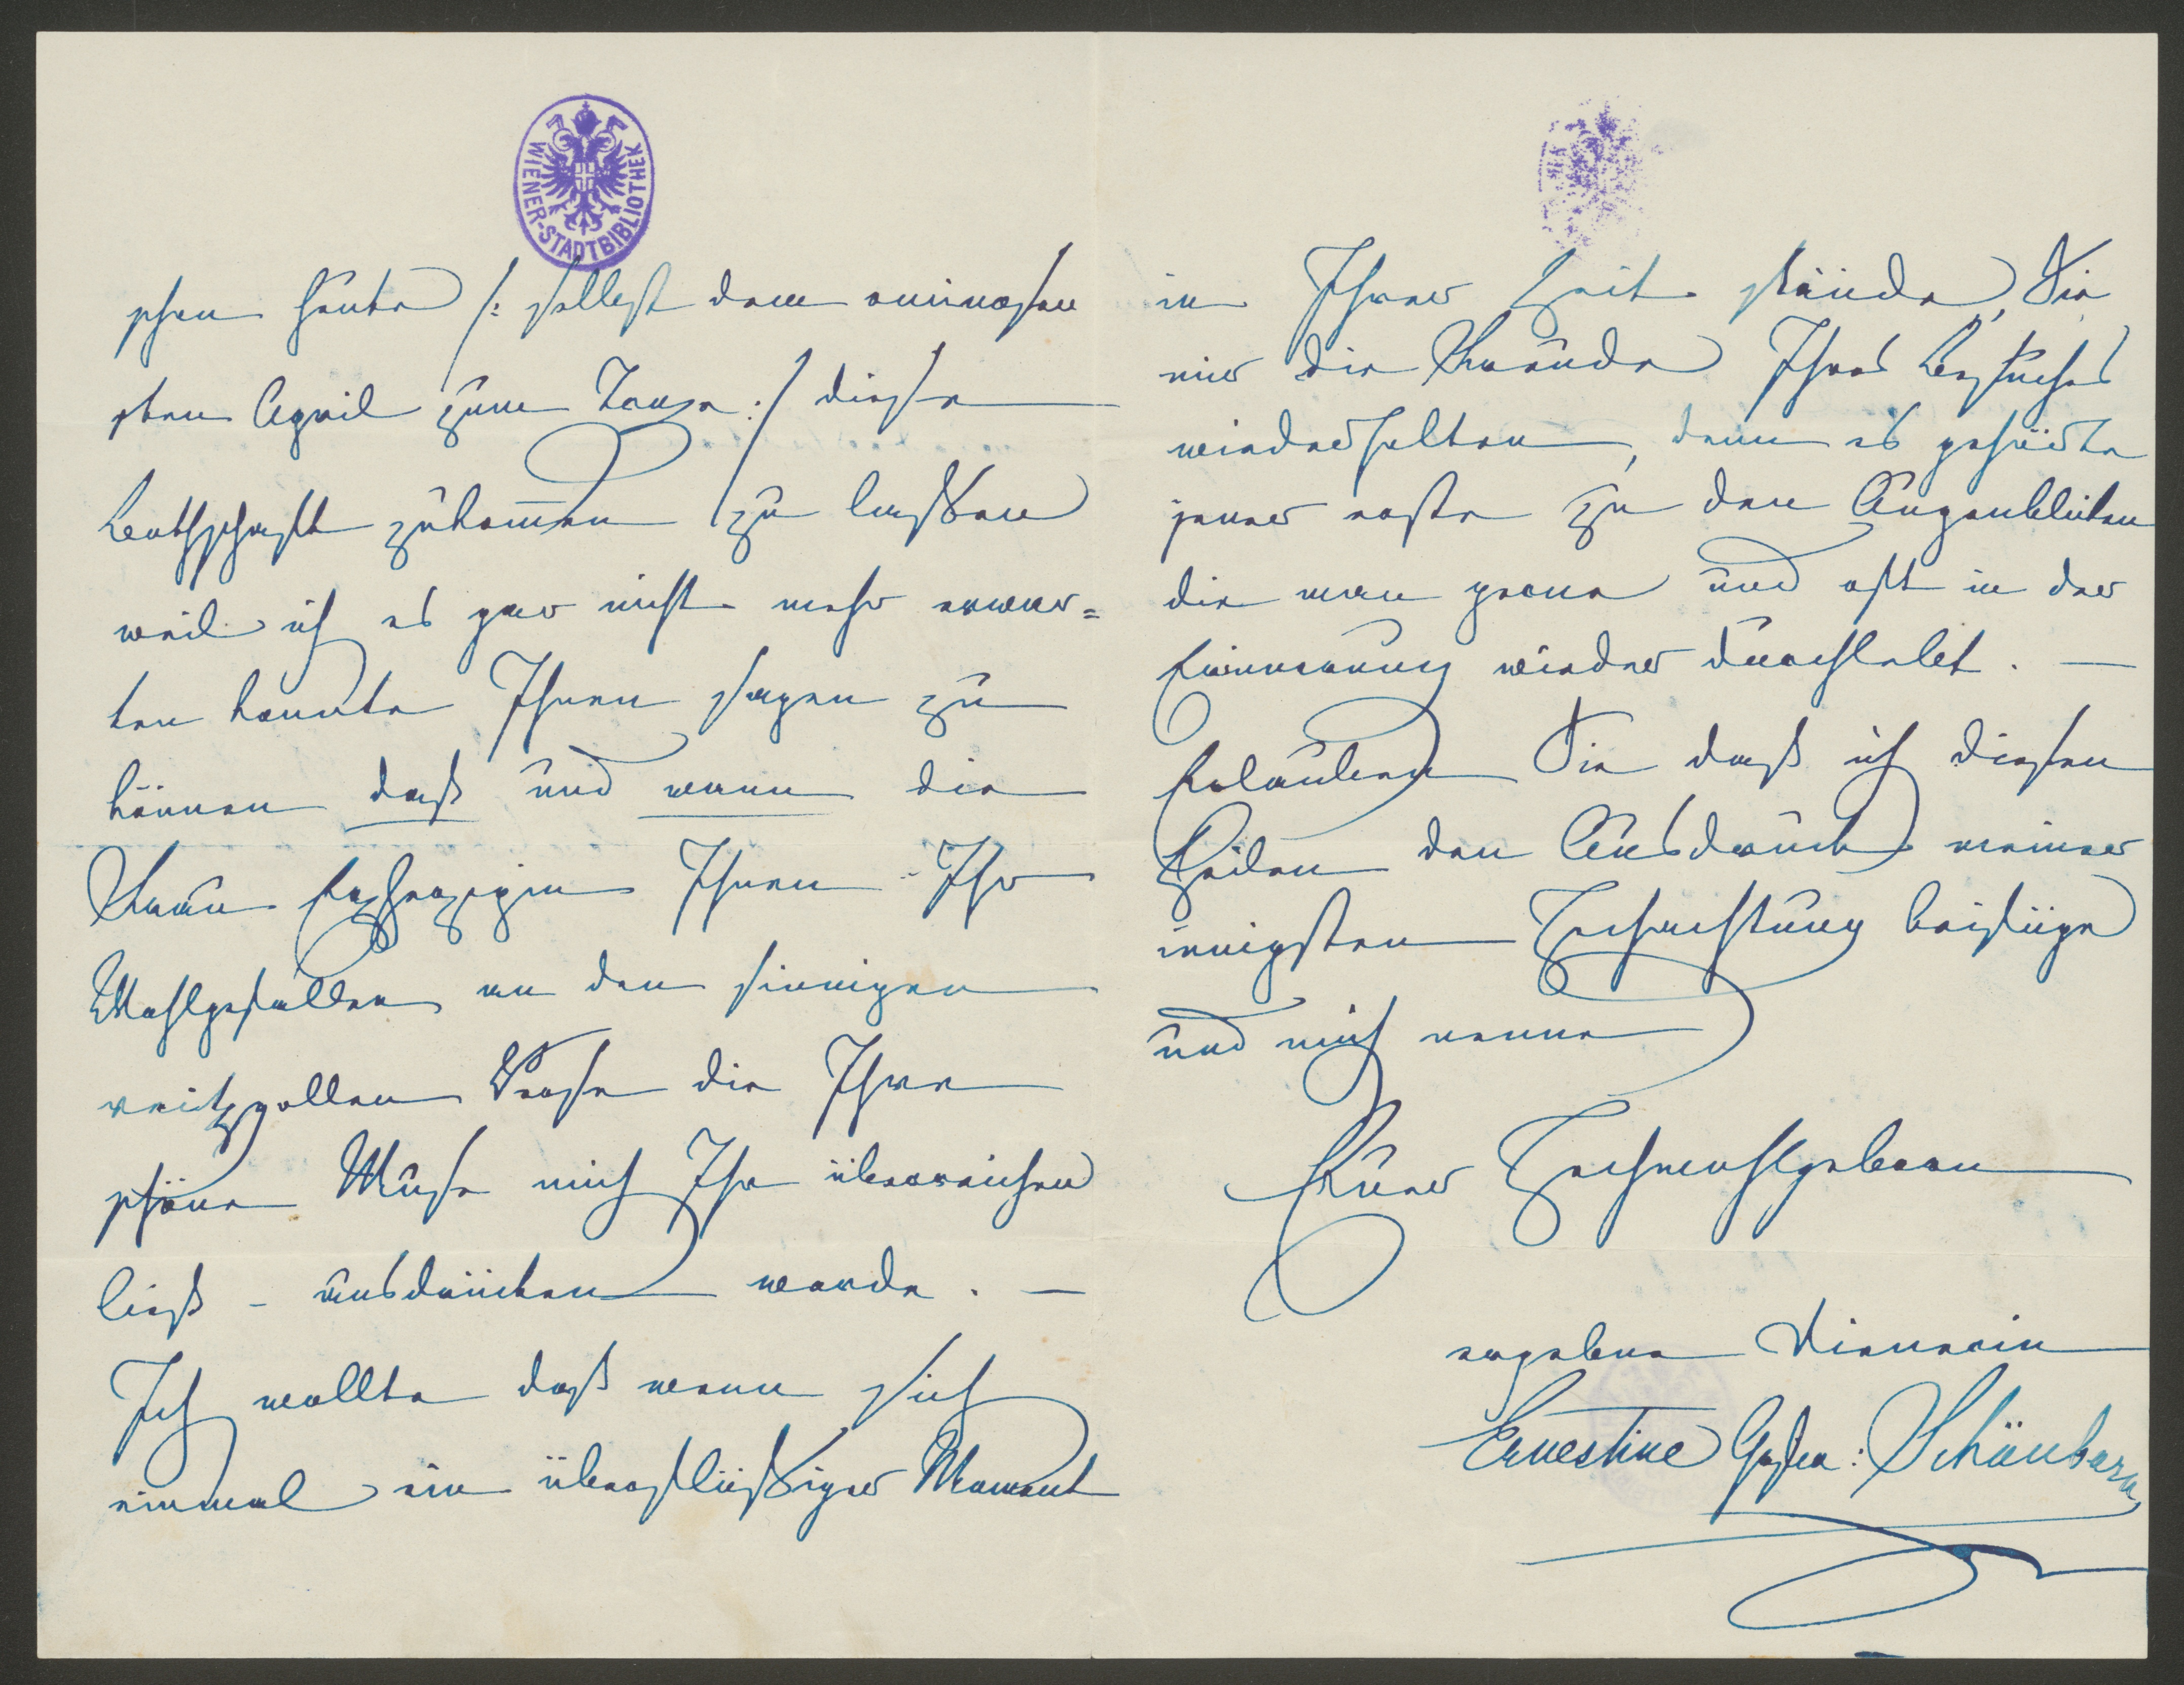 WIENER-STADTBIBLIOTHEK
schen heute /: selbst dem ominosen
sten April zum Tange :/ diese
Bothschaft zukom̅en zu lassen
weil ich es gar nicht mehr erwar=
ten konnte Ihnen sagen zu
können daß und wann die
Frau Erzherzogin Ihnen Ihr
Wohlgefallen an den sinnigen
reitzvollen Prosa die Ihre
schöne Muse mich Ihr überreichen
ließ - ausdrücken werde. —
Ich wollte daß wenn sich
einmal ein überflüssiger Moment
in Ihrer Zeit fände, Sie
mir die Freude Ihres Besuches
wiederholten, denn es gehörte
jener erste zu den Augenblicken
die man gerne und oft in der
Erinnerung wieder durchlebt. —
Erlauben Sie daß ich diesen
Zeilen den Ausdruck meiner
innigsten Hochachtung beifüge
und mich nenne
Euer Hochwohlgeboren
ergebene Dienerin
Ernestine Schönborn